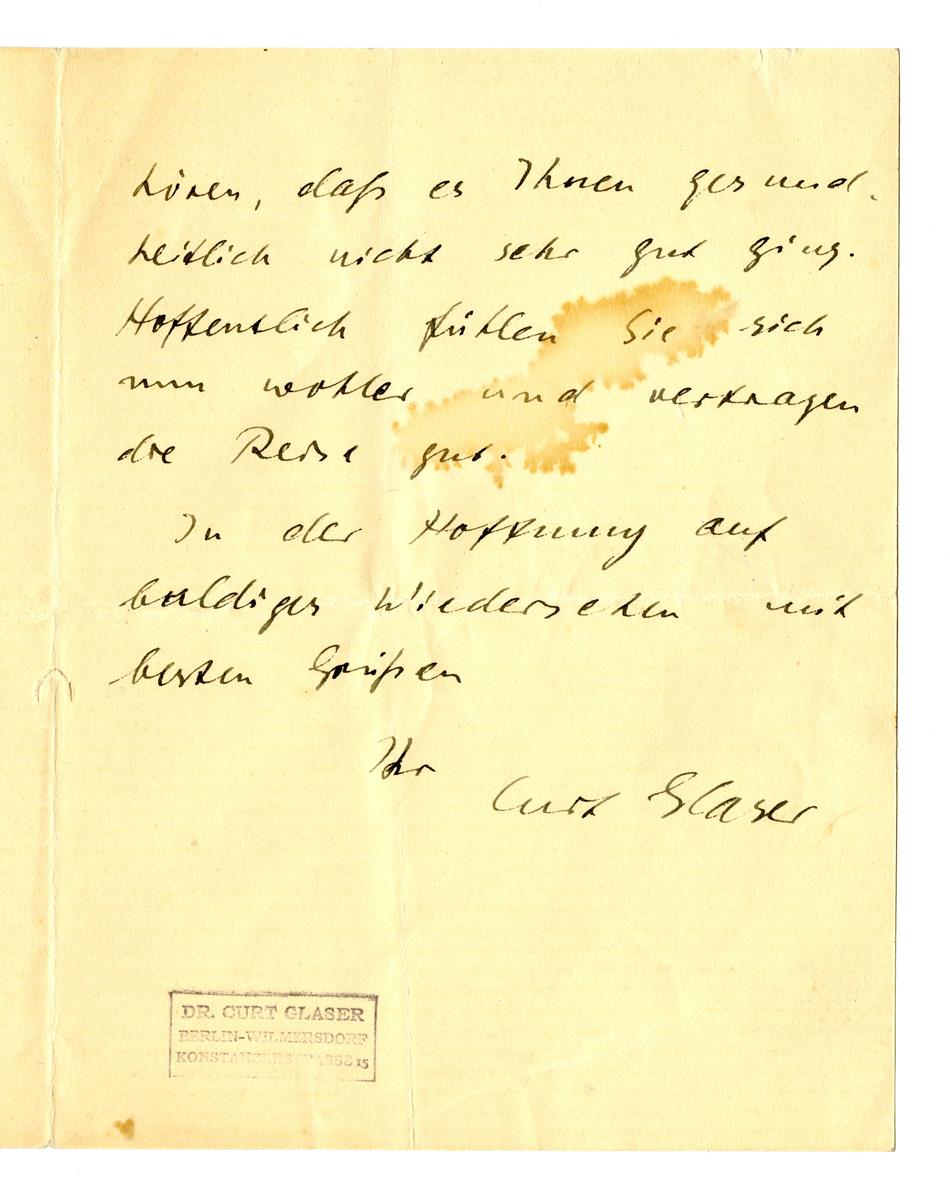 hören, daß es Ihnen gesund-
heitlich nicht sehr gut ging.
Hoffentlich fühlen Sie sich
nun wohler und vertragen
die Reise gut.
In der Hoffnung auf
baldiges Wiedersehen mit
besten Grüßen
Ihr
Curt Glaser
DR. CURT GLASER
BERLIN-WILMERSDORF
KONSTANZERSTRASSE 15